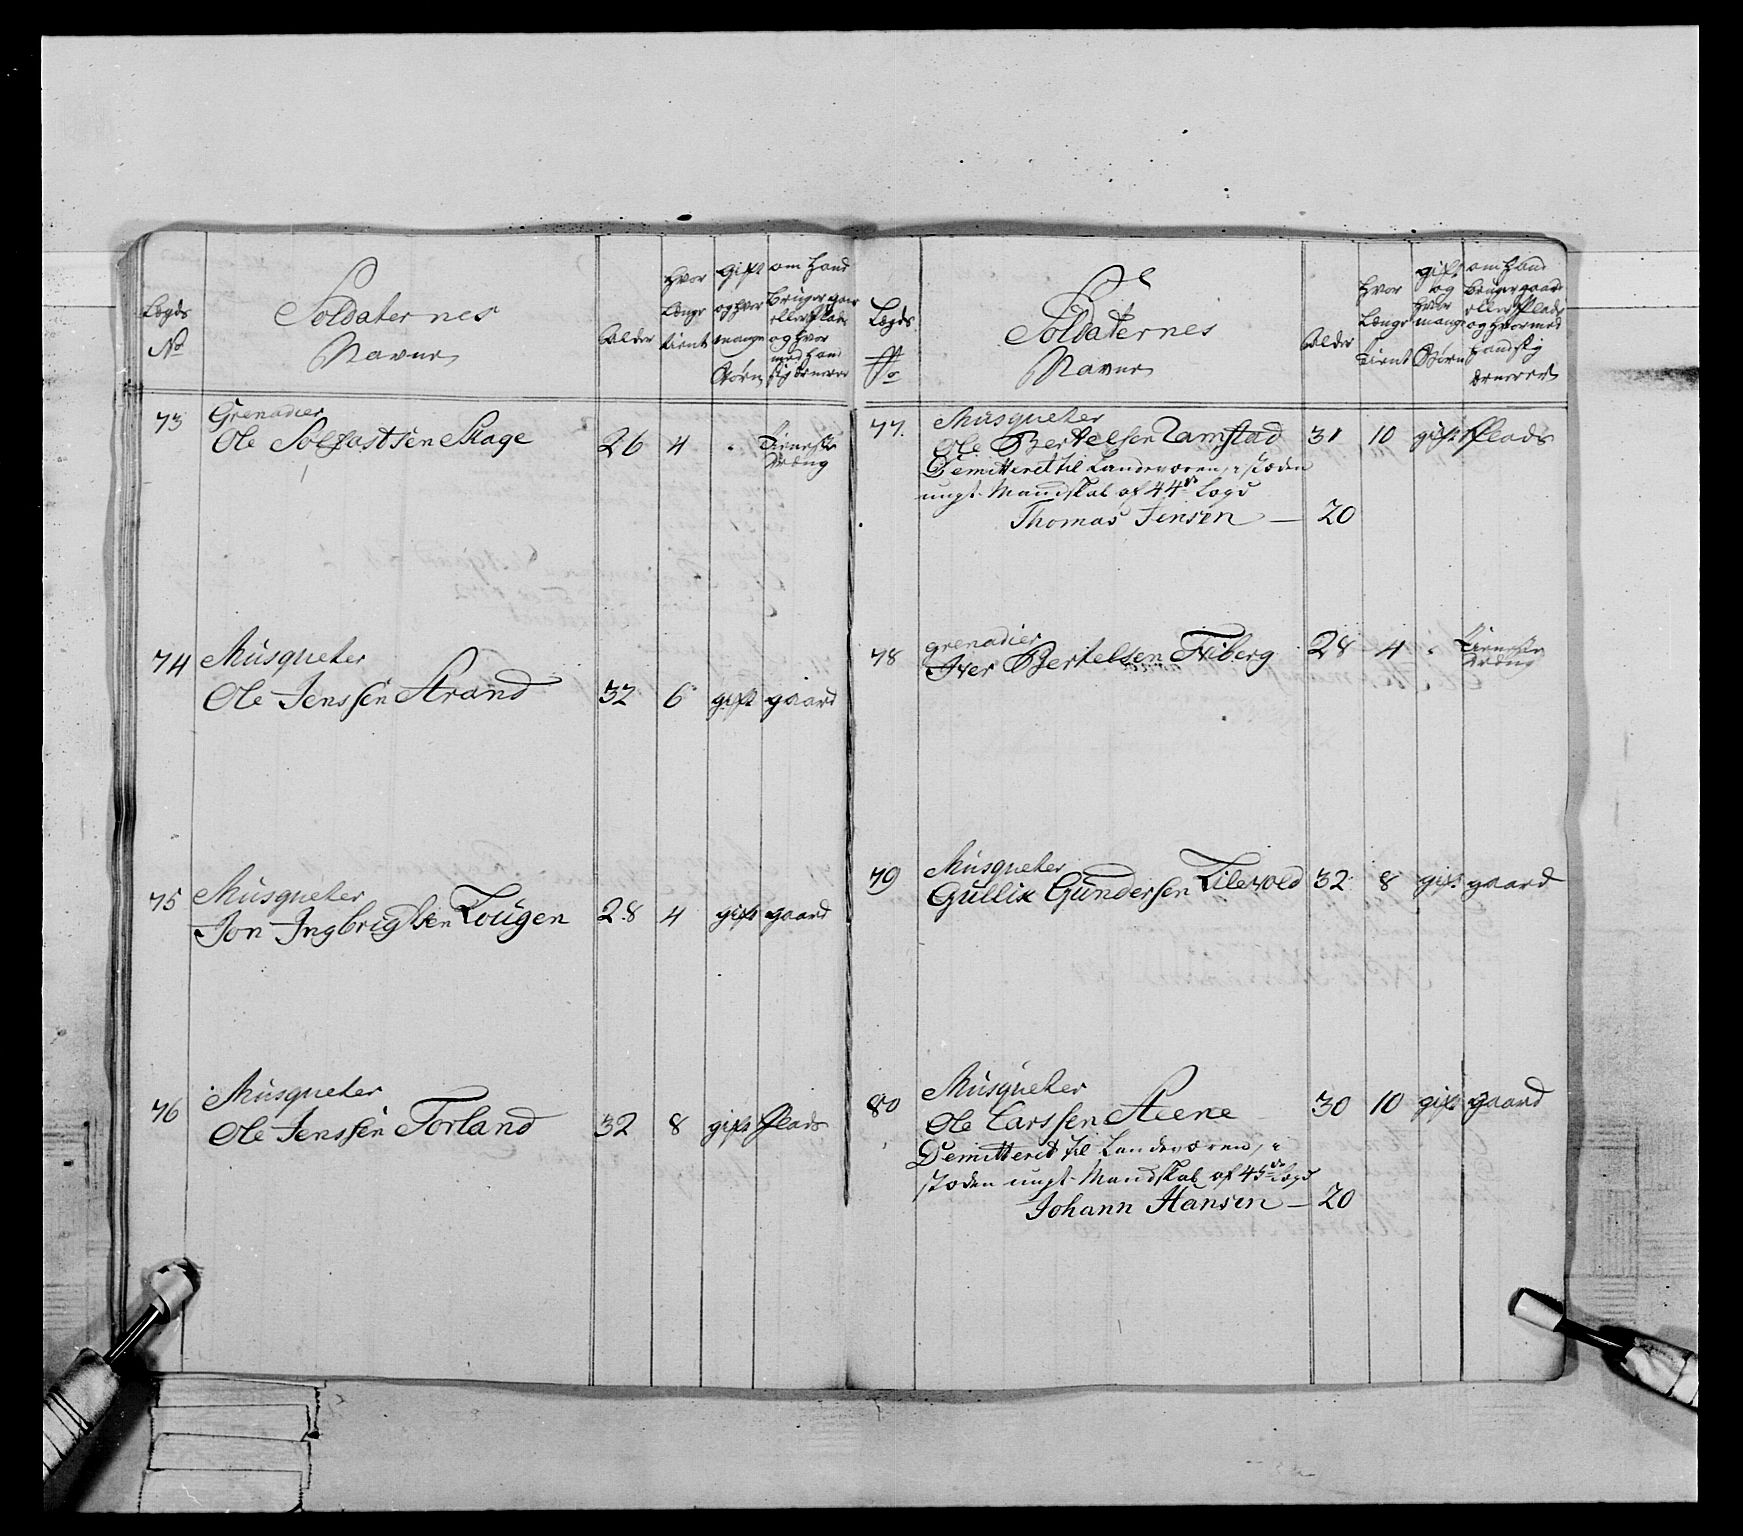 Lægds
No
Soldaternes
Navne
Alder
Hvor
Længe
tient
gift
og hvor
mange
Børn
om Hand
Bruger gaar
eller Plads
og hvor
med Hand
sig ernærer
73
Grenadier
Ole Solfastsen Skage
26 4 - Tieneste
Dräng
74
Musqueter
Ole Jenssen Strand
32 6 gift gaard
75
Musqueter
Jon Ingbrigtsen Lougen
28 4 gift gaard
76
Musqueter
Ole Jenssen Forland
32 8 gift Plads
Lægds
No
Soldaternes
Navne
Alder
Hvor
Længe
tient
gift
og
hvor
mange
Børn
om Hand
bruger gaard
eller Plads
og hvormed
Hand sig
ernærer
77.
Musqueter
Ole Bertelsen Ramstad 31 10 gift Plads
Demitteret til Landeværen, i stæden
ungt Mandskab af 44de Lægd
Thomas Jensen — 20
78
Grenadier
Iver Bertelsen Fiberg 28 4 - Tieneste
Dräng
79
Musqueter
Gullik Gundersen Lilevold 32 8 gift gaard
80
Musqueter
Ole Larssen Steene 30 10 gift gaard
Demitteret til Landeværen, i
stæden ungt Mandskab af 45de Lægd
Johann Hansen — 20